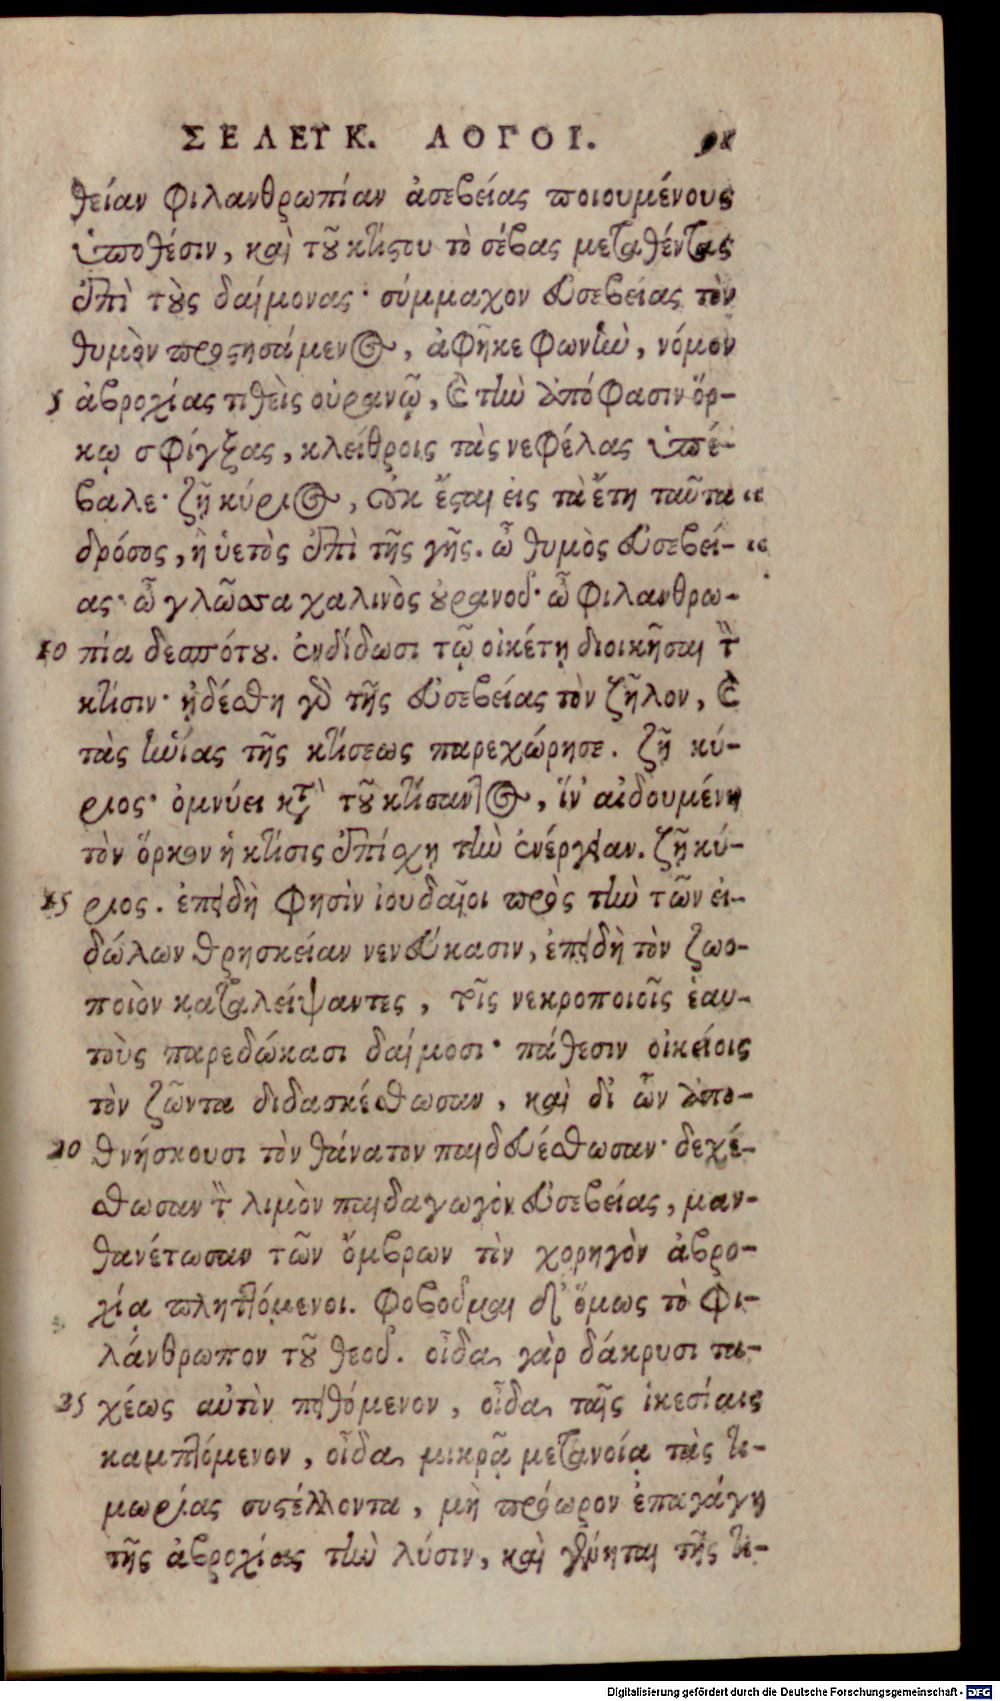 ΣΕΛΕΥΚ. ΛΟΓΟΙ.
θείαν φιλανθρωπίαν ἀσεβείας ποιουμένους
ὑπόθέσιν, καὶ τοῦ κτίστου τὸ σέβας μεταθέντας
ἐπὶ τοὺς δαίμονας· σύμμαχον εὐσεβείας τὸν
θυμὸν προστησάμενος, ἀφῆκε φωνὴν, νόμον
5 ἀβροχίας τιθεὶς οὐρανῷ, καὶ τὴν ἀπόφασιν ὅρ-
κῳ σφίγξας, κλείθροις τὰς νεφέλας ὑπέ-
βαλε· ζῇ κύριος, οὐκ ἔσται εἰς τὰ ἔτη ταῦτα "
δρόσος, ἢ ὑετὸς ἐπὶ τῆς γῆς. ὦ θυμὸς εὐσεβεί- "
ας· ὦ γλῶσσα χαλινὸς οὐρανοῦ· ὦ φιλανθρω-
10 πία δεσπότου. ἐνδίδωσι τῷ οἰκέτῃ διοικῆσαι τὴν
κτίσιν· ᾐδέσθη γὰρ τῆς εὐσεβείας τὸν ζῆλον, καὶ
τὰς ἡνίας τῆς κτίσεως παρεχώρησε. ζῇ κύ-
ριος· ὀμνύει κατὰ τοῦ κτίσαντος, ἵν' αἰδουμένη
τὸν ὅρκον ἡ κτίσις ἐπίσχῃ τὴν ἐνέργειαν. ζῇ κύ-
15 ριος. ἐπειδὴ φησὶν ἰουδαῖοι πρὸς τὴν τῶν εἰ-
δώλων θρησκείαν νενεύκασιν, ἐπειδὴ τὸν ζωο-
ποιὸν καταλείψαντες, τοῖς νεκροποιοῖς ἑαυ-
τοὺς παρεδώκασι δαίμοσι· πάθεσιν οἰκείοις
τὸν ζῶντα διδασκέσθωσαν, καὶ δι' ὧν ἀπο-
20 θνήσκουσι τὸν θάνατον παιδευέσθωσαν· δεχέ-
σθωσαν τὸν λιμὸν παιδαγωγὸν εὐσεβείας, μαν-
θανέτωσαν τῶν ὄμβρων τὸν χορηγὸν ἀβρο-
χίᾳ πληττόμενοι. φοβοῦμαι δ' ὅμως τὸ φι-
λάνθρωπον τοῦ θεοῦ. οἶδα γὰρ δάκρυσι τα-
25 χέως αὐτὸν πειθόμενον, οἶδα ταῖς ἱκεσίαις
καμπτόμενον, οἶδα μικρᾷ μετανοίᾳ τὰς τι-
μωρίας συστέλλοντα, μὴ πρόωρον ἐπαγάγῃ
τῆς ἀβροχίας τὴν λύσιν, καὶ γένηται τῆς τι-
Digitalisierung gefördert durch die Deutsche Forschungsgemeinschaft - DFG